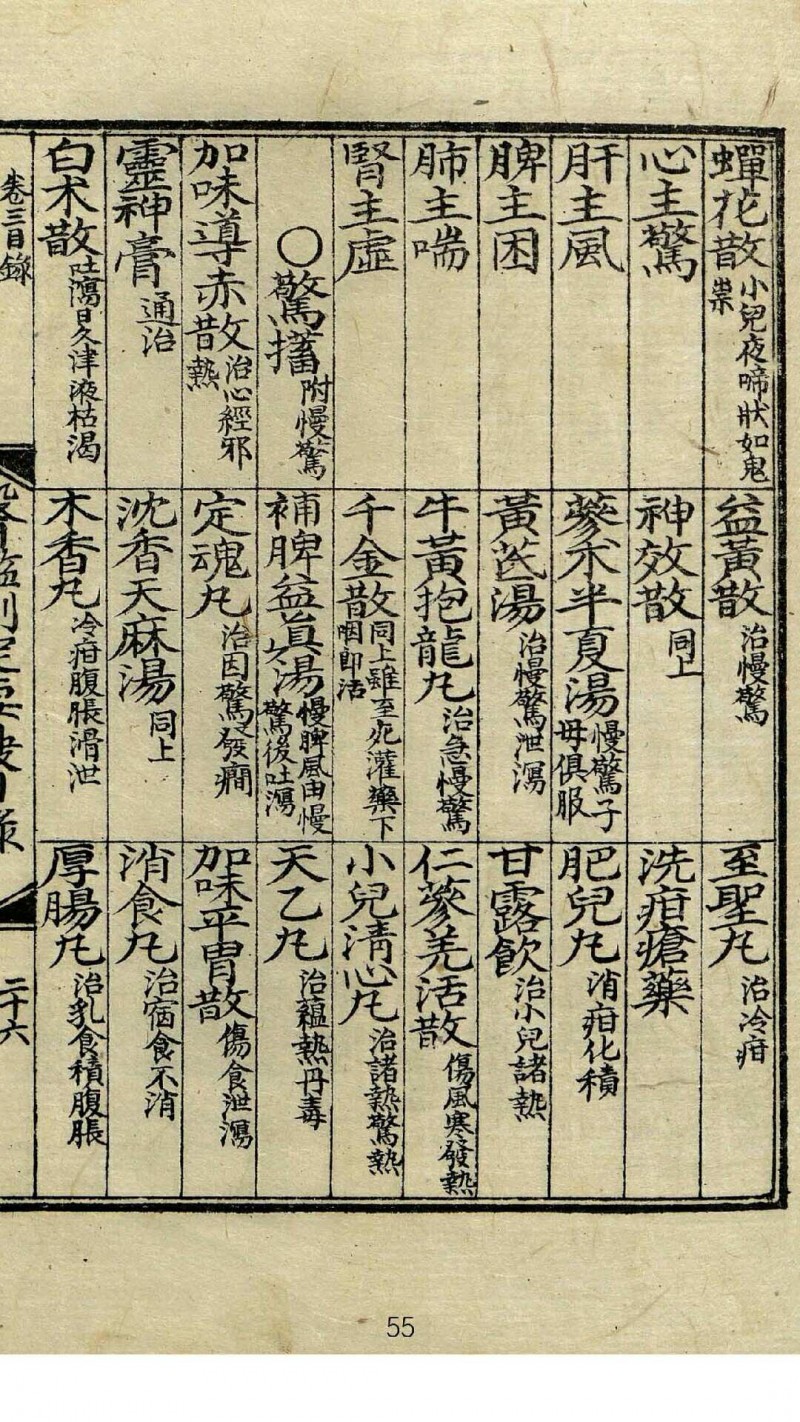 蟬花散 小兒夜啼狀如鬼祟
心主驚
肝主風
脾主困
肺主喘
腎主虛
○驚搐 附慢驚
加味導赤散 治心經邪熱
靈神膏 通治
白朮散 吐瀉日久津液枯渴
益黃散 治慢驚
神效散 同上
蔘朮半夏湯 慢驚子母俱服
黃茋湯 治慢驚泄瀉
牛黃抱龍丸 治急慢驚
千金散 同上雖至死灌藥下咽卽活
補脾益眞湯 慢脾風由慢驚後吐瀉
定魂丸 治因驚發癎
沈香天麻湯 同上
木香丸 冷疳腹脹滑泄
至聖丸 治冷疳
洗疳瘡藥
肥兒丸 消疳化積
甘露飮 治小兒諸熱
仁蔘羌活散 傷風寒發熱
小兒淸心丸 治諸熱驚熱
天乙丸 治蘊熱丹毒
加味平胃散 傷食泄瀉
消食丸 治宿食不消
厚腸丸 治乳食積腹脹
卷三目錄
二十六
55